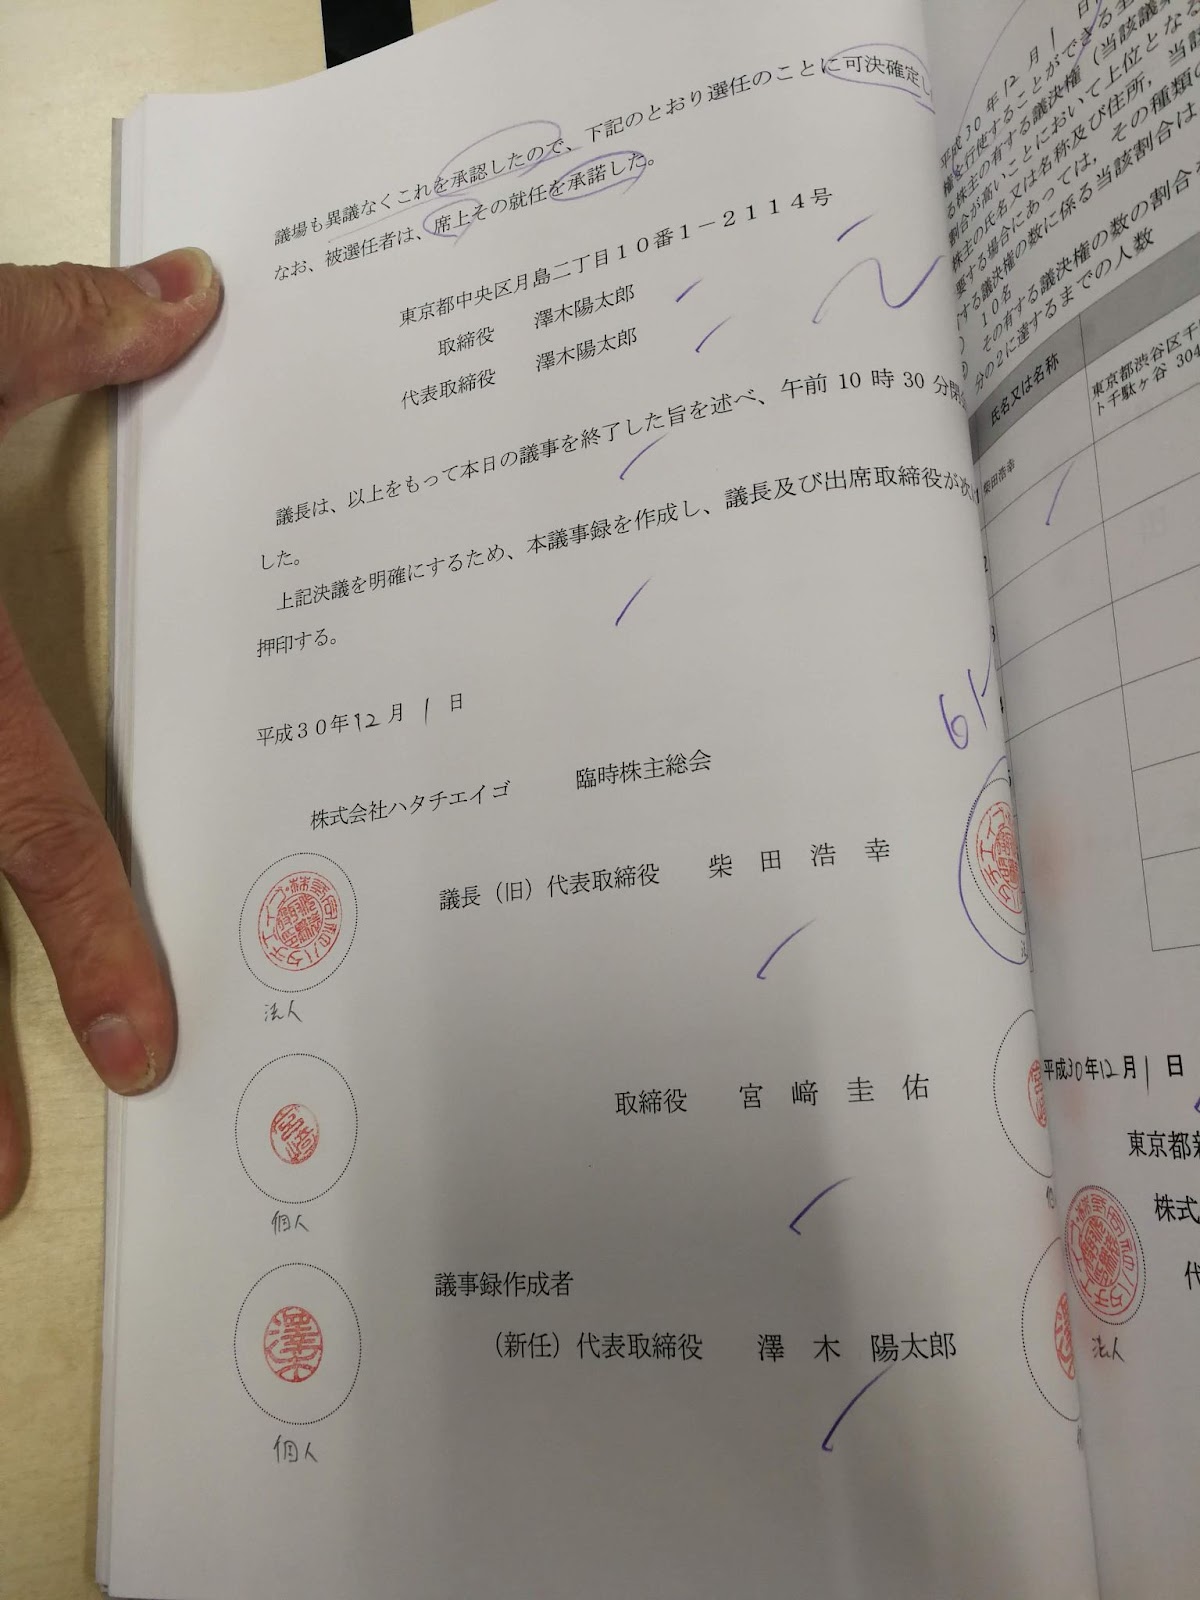 議場も異議なくこれを承認したので、下記のとおり選任のことに可決確定し
なお、被選任者は、席上その就任を承諾した。
東京都中央区月島二丁目１０番１－２１１４号
取締役　　澤木陽太郎
代表取締役　　澤木陽太郎
議長は、以上をもって本日の議事を終了した旨を述べ、午前 10 時 30 分閉会
した。
上記決議を明確にするため、本議事録を作成し、議長及び出席取締役が次に
押印する。
平成３０年12月 1 日
株式会社ハタチエイゴ　　臨時株主総会
議長（旧）代表取締役　　柴　田　浩　幸
法人
取締役　　宮　﨑　圭　佑
個人
議事録作成者
（新任）代表取締役　　澤　木　陽太郎
個人
澤木
61
平成３０年12月 1 日
権を行使することができる
る株主の有する議決権（当該議案
割合が高いことにおいて上位となる
株主の氏名又は名称及び住所，当該
要する場合にあっては，その種類の
する議決権の数に係る当該割合は
10名
その有する議決権の数の割合
分の2に達するまでの人数
氏名又は名称
東京都渋谷区千
ト千駄ヶ谷 304
1
柴田浩幸
2
3
平成30年12月 1 日
東京都新
株式
代
法人